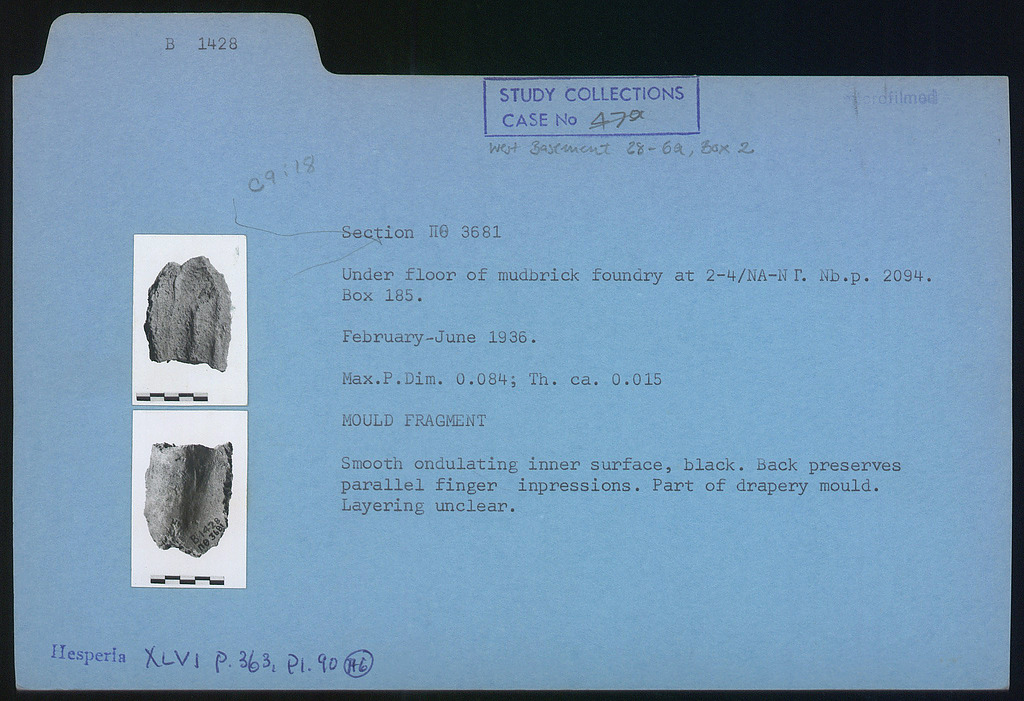 B 1428
STUDY COLLECTIONS
CASE No 47a
West Basement 28-6a, Box 2
C9:18
Section ΠΘ 3681
Under floor of mudbrick foundry at 2-4/NA-NΓ. Nb.p. 2094.
Box 185.
February-June 1936.
Max.P.Dim. 0.084; Th. ca. 0.015
MOULD FRAGMENT
Smooth ondulating inner surface, black. Back preserves
parallel finger inpressions. Part of drapery mould.
Layering unclear.
B 1428
ΠΘ 3681
Hesperia XLVI p. 363, pl. 90